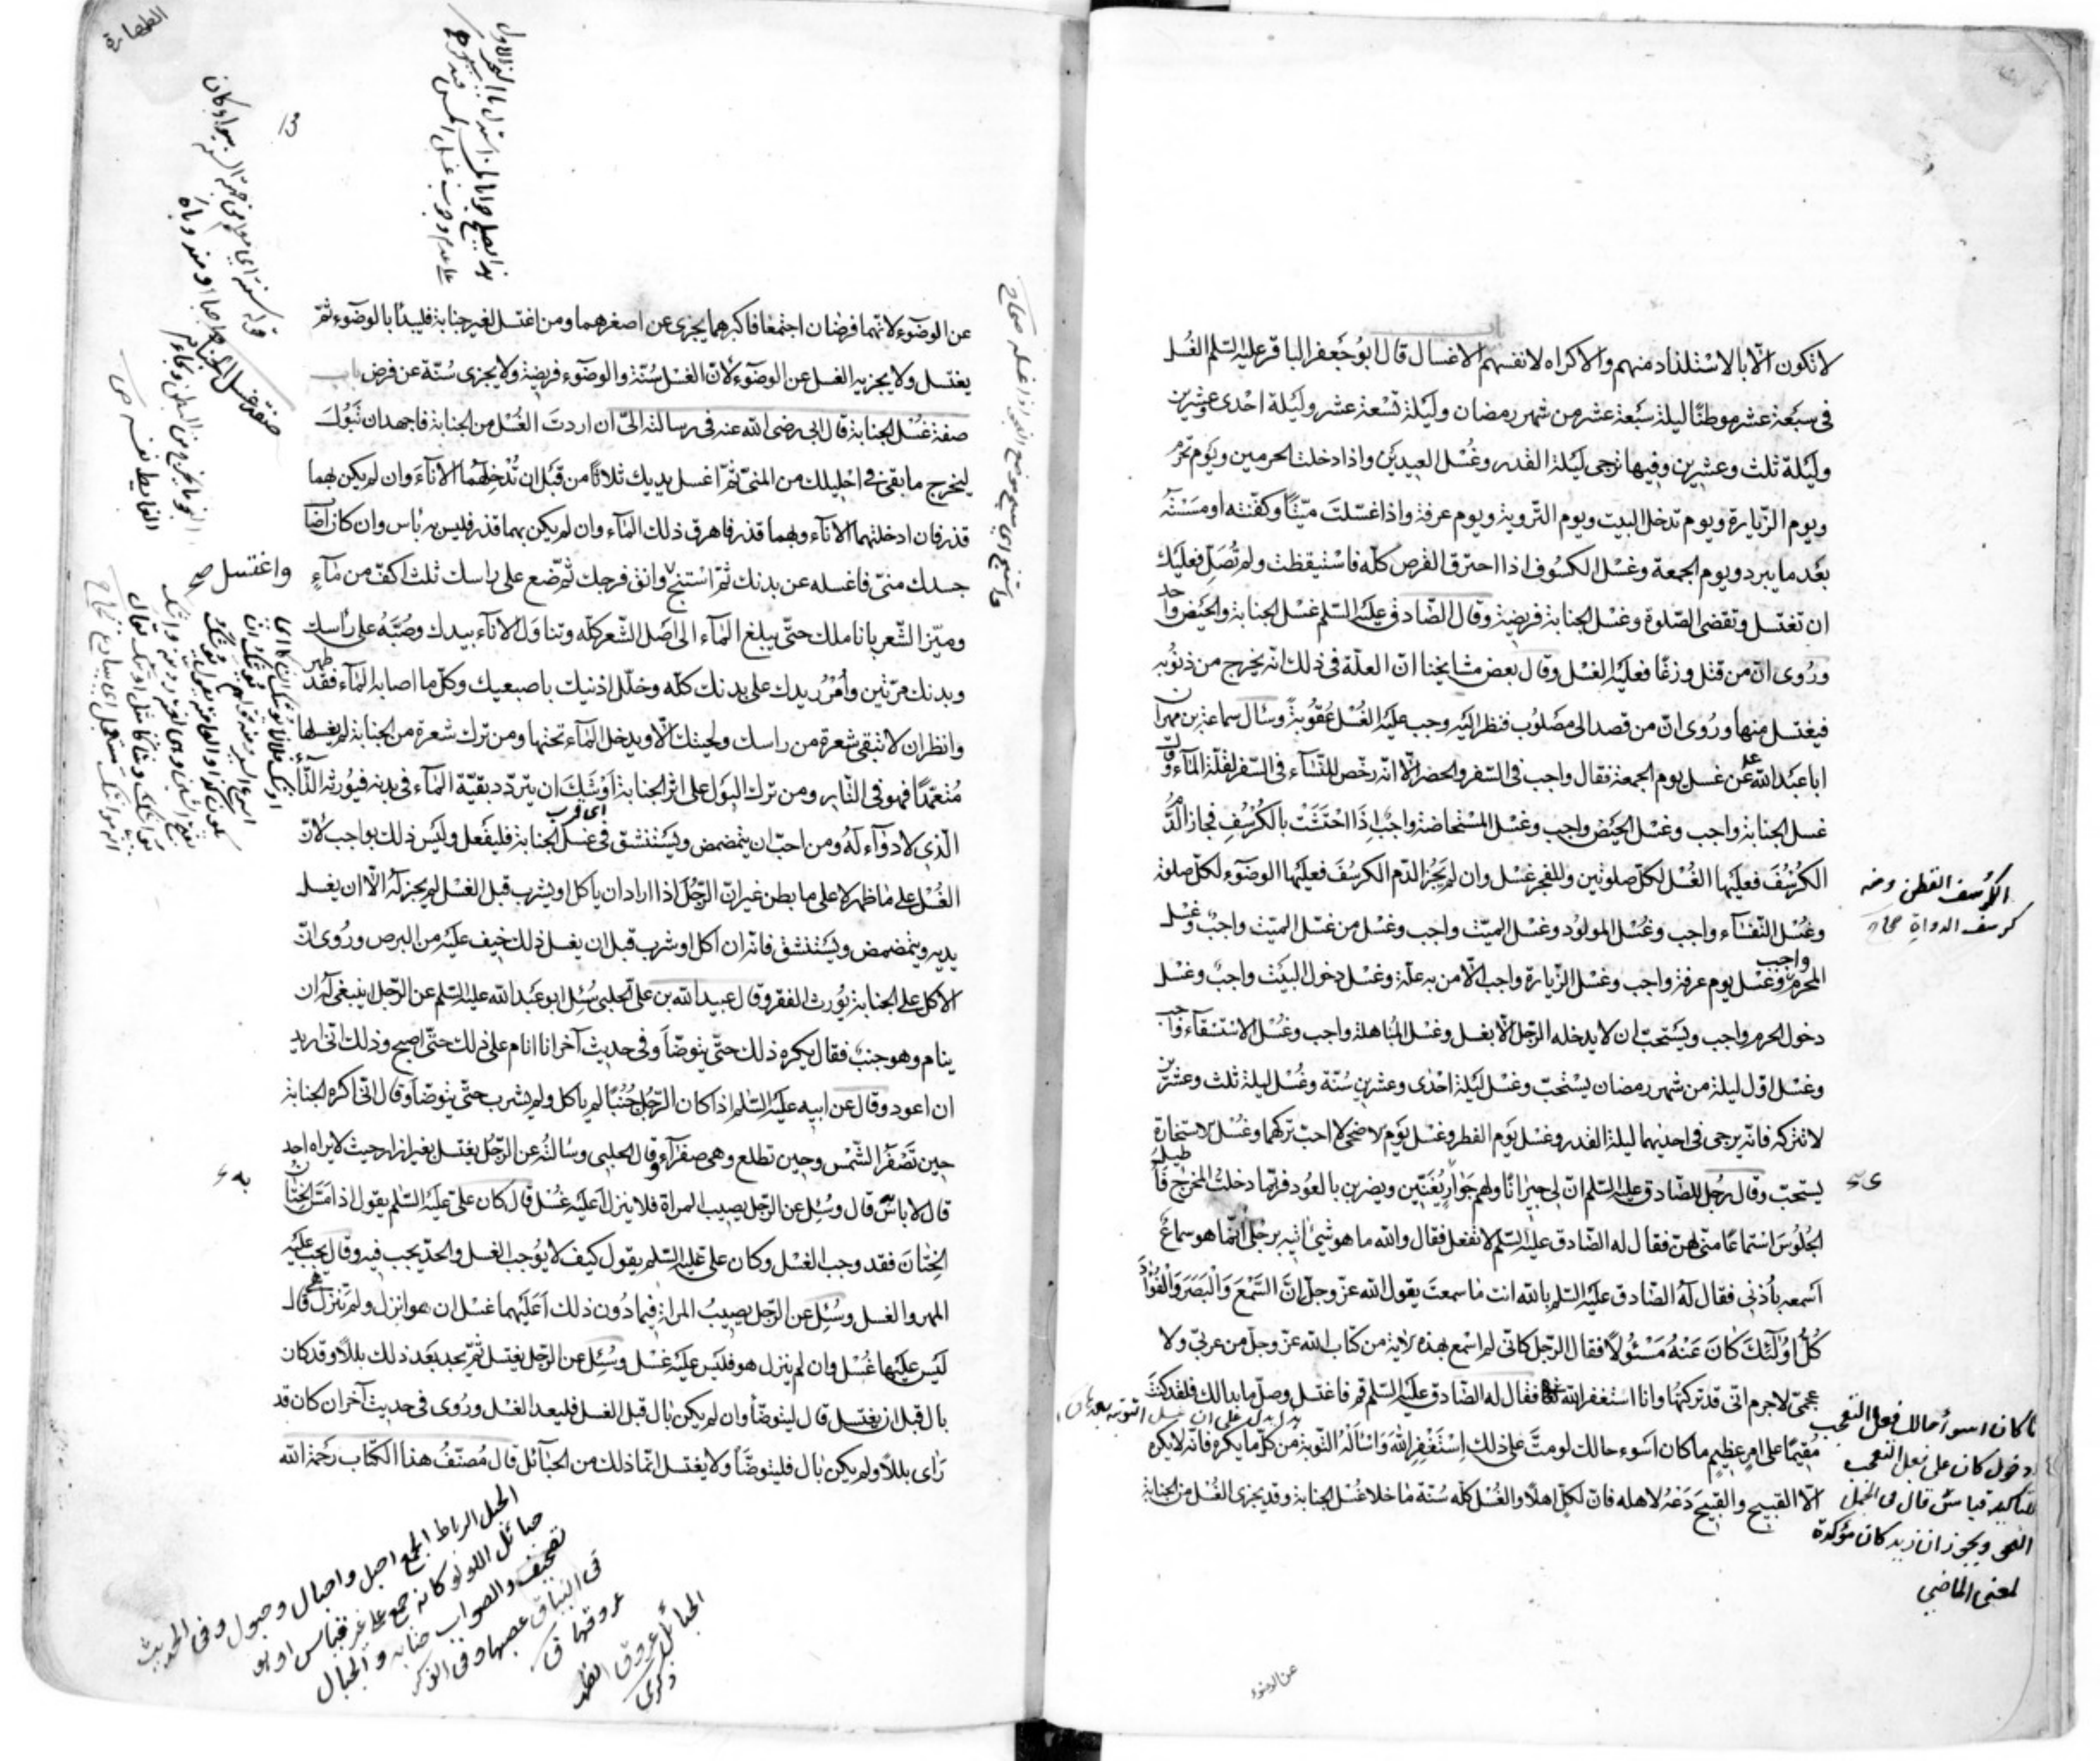 لا تكون الّا بالاستلذاد منهم والاكراه لانفسهم الاغسال قال ابو جعفر الباقر عليه السّلم الغسل
فى سبعة عشر موطنًا ليلة سبعة عشر من شهر رمضان وليلة تسعة عشر وليلة احدى وعشرين
وليلة ثلث وعشرين وفيها ترجى ليلة القدر وغسل العيدين واذا دخلت الحرمين ويوم تحرم
ويوم الزّيارة ويوم تدخل البيت ويوم التّروية ويوم عرفة واذا غسّلت ميّتًا وكفّنته او مسسته
بعد ما يبرد ويوم الجمعة وغسل الكسوف اذا احترق القرص كلّه فاستيقظت ولم تصلّ فعليك
ان تغتسل وتقضى الصّلوة وغسل الجنابة فريضة وقال الصّادق عليه السّلم غسل الجنابة والحيض واحد
ورُوى انّ من قتل وزغًا فعليه الغسل وقال بعض مشايخنا انّ العلّة فى ذلك انّه يخرج من ذنوبه
فيغتسل منها ورُوى انّ من قصد الى مصلوب فنظر اليه وجب عليه الغسل عقوبةً وسئال سماعة بن مهران
ابا عبد الله عن غسل يوم الجمعة فقال واجب فى السّفر والحضر الّا انّه رخّص للنّساء فى السّفر لقلّة الماء وقال
غسل الجنابة واجب وغسل الحيض واجب وغسل المستحاضة واجب اذا احتشت بالكرسف فجاز الدّم
الكرسف فعليها الغسل لكلّ صلوتين وللفجر غسل وان لم يجز الدّم الكرسف فعليها الوضوء لكلّ صلوة
وغسل النّفساء واجب وغسل المولود وغسل الميّت واجب وغسل من غسّل الميّت واجب وغسل
المحرم واجب وغسل يوم عرفة واجب وغسل الزّيارة واجب الّا من به علّة وغسل دخول البيت واجب وغسل
دخول الحرم واجب ويستحبّ ان لا يدخله الرّجل الّا بغسل وغسل المباهلة واجب وغسل الاستسقاء واجب
وغسل اوّل ليلة من شهر رمضان يستحبّ وغسل ليلة احدى وعشرين سنّة وغسل ليلة ثلث وعشرين
لا تتركه فانّه يرجى فى احديهما ليلة القدر وغسل يوم الفطر وغسل يوم الاضحى لا احبّ تركهما وغسل الاستخارة
يستحبّ وقال رجل للصّادق عليه السّلم انّ لى جيرانًا ولهم جوار يغنّين ويضربن بالعود فربّما دخلت المخرج فاطيل
الجلوس استماعًا منّى لهنّ فقال له الصّادق عليه السّلم لا تفعل فقال والله ما هو شىء اتيه برجلى انّما هو سماع
اسمعه باذنى فقال له الصّادق عليه السّلم بالله انت ما سمعت يقول الله عزّ وجلّ انّ السّمع والبصر والفؤاد
كلّ اولئك كان عنه مسئولًا فقال الرّجل كانّى لم اسمع بهذه الاية من كتاب الله عزّ وجلّ من عربىّ ولا
عجمىّ لا جرم انّى قد تركتها وانا استغفر الله فقال له الصّادق عليه السّلم قم فاغتسل وصلّ ما بدا لك فلقد كنت
مقيمًا على امر عظيم ما كان اسوء حالك لو متّ على ذلك استغفر الله واسأله التّوبة من كلّ ما يكره فانّه لا يكره
الّا القبيح والقبيح دعه لاهله فانّ لكلّ اهلًا والغسل كلّه سنّة ما خلا غسل الجنابة وقد يجزى الغسل من الجنابة
الكرسف القطن ومنه
كرسف الدواة صحاح
ما كان اسوأ حالك فعل التعجب
دخول كان على فعل التعجب
للتأكيد قياس قال فى الجمل
النحو ويجوز ان تزيد كان مؤكدة
لمعنى الماضى
عن الوضوء
الطهارة
عن الوضوء لانّهما فرضان اجتمعا فاكبرهما يجزى عن اصغرهما ومن اغتسل لغير جنابة فليبدأ بالوضوء ثمّ
يغتسل ولا يجزيه الغسل عن الوضوء لانّ الغسل سنّة والوضوء فريضة ولا يجزى سنّة عن فرض باب
صفة غسل الجنابة قال ابى رضى الله عنه فى رسالته الىّ ان اردت الغسل من الجنابة فاجهد ان تبول
ليخرج ما بقى فى احليلك من المنىّ ثمّ اغسل يديك ثلاثًا من قبل ان تدخلهما الاناء وان لم يكن بهما
قذر فان ادخلتهما الاناء وبهما قذر فاهرق ذلك الماء وان لم يكن بهما قذر فليس به بأس وان كان اصاب
جسدك منىّ فاغسله عن بدنك ثمّ استنج وانق فرجك ثمّ ضع على راسك ثلث اكفّ من ماء
وميّز الشّعر باناملك حتّى يبلغ الماء الى اصل الشّعر كلّه وتناول الاناء بيدك وصبّه على رأسك
وبدنك مرّتين وامرر يدك على بدنك كلّه وخلّل اذنيك باصبعيك وكلّ ما اصابه الماء فقد طهر
وانظر ان لا تبقى شعرة من راسك ولحيتك الّا ويدخل الماء تحتها ومن ترك شعرة من الجنابة لم يغسلها
متعمّدًا فهو فى النّار ومن ترك البول على اثر الجنابة اوشك ان يتردّد بقيّة الماء فى بدنه فيورثه الدّاء
الّذى لا دواء له ومن احبّ ان يتمضمض ويستنشق فى غسل الجنابة فليفعل وليس ذلك بواجب لانّ
الغسل على ما ظهر لا على ما بطن غير انّ الرّجل اذا اراد ان ياكل او يشرب قبل الغسل لم يجز له الّا ان يغسل
يديه ويتمضمض ويستنشق فانّه ان اكل او شرب قبل ان يغسل ذلك خيف عليه من البرص ورُوى انّ
الاكل على الجنابة يورث الفقر وقال عبيد الله بن على الحلبى سئل ابو عبد الله عليه السّلم عن الرّجل اينبغى له ان
ينام وهو جنب فقال يكره ذلك حتّى يتوضّأ وفى حديث آخر انا انام على ذلك حتّى اصبح وذلك انّى اريد
ان اعود وقال عن ابيه عليه السّلم اذا كان الرّجل جنبًا لم ياكل ولم يشرب حتّى يتوضّأ وقال انّى اكره الجنابة
حين تصفرّ الشّمس وحين تطلع وهى صفراء وقال الحلبى وسالته عن الرّجل يغتسل بغير ازار حيث لا يراه احد
قال لا باس قال وسئل عن الرّجل يصيب المراة فلا ينزل اعليه غسل قال كان علىّ عليه السّلم يقول اذا مسّ الختان
الختان فقد وجب الغسل وكان علىّ عليه السّلم يقول كيف لا يوجب الغسل والحدّ يجب فيه وقال يجب عليه
المهر والغسل وسئل عن الرّجل يصيب المراة فيما دون ذلك اعليهما غسل ان هو انزل ولم تنزل هى قال
ليس عليها غسل وان لم ينزل هو فليس عليه غسل وسئل عن الرّجل يغتسل ثمّ يجد بعد ذلك بللًا وقد كان
بال قبل ان يغتسل قال ليتوضّأ وان لم يكن بال قبل الغسل فليعد الغسل ورُوى فى حديث آخر ان كان قد
رأى بللًا ولم يكن بال فليتوضّأ ولا يغتسل انّما ذلك من الحبائل قال مصنّف هذا الكتاب رحمه الله
صفة غسل الجنابة
واغتسل
اى قرب
الحبل الرباط الجمع احبل واحبال وحبول وفى الحديث
حبائل اللؤلؤ كانه جمع على غير قياس او هو
تصحيف والصواب جنابذ
الحبائل عروق الظهر
ذكرى